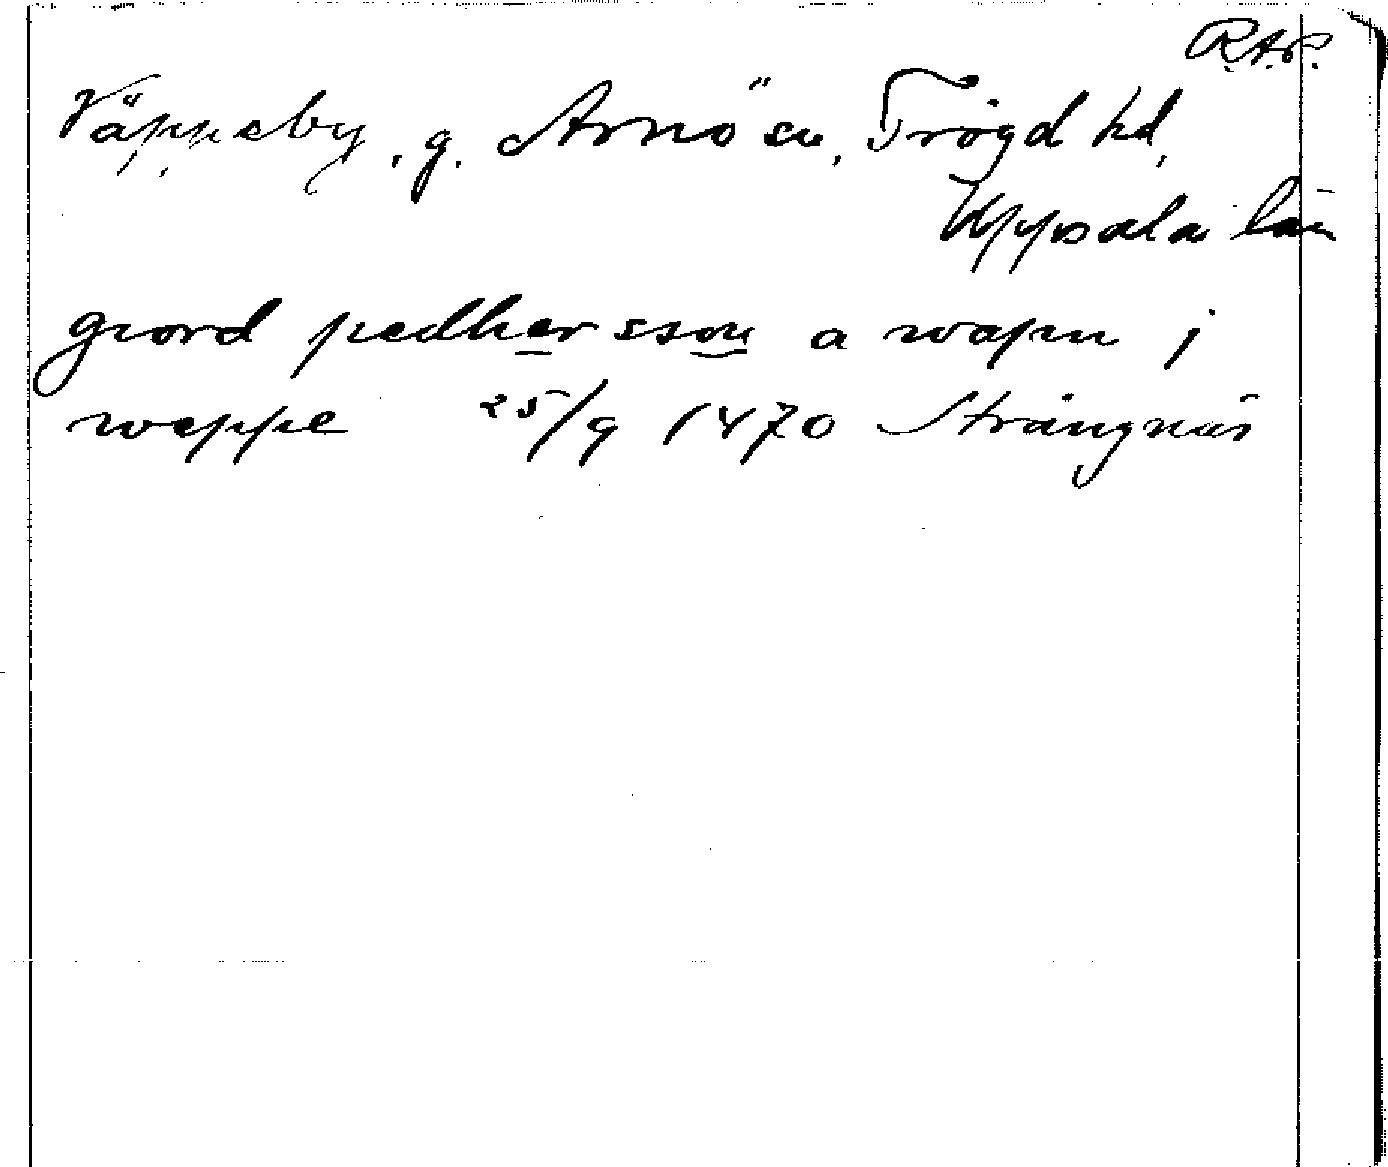 R.A.P.
Väppeby, g. Arnö sn, Trögd hd,
Uppsala län
giord pedhersson a wapn j
weppe 25/9 1470 Strängnäs